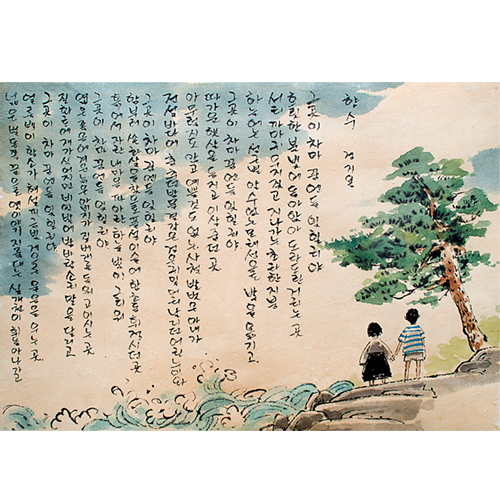 넓은 벌 동쪽 끝으로 옛이야기 지줄대는 실개천이 휘돌아 나가고
얼룩백이 황소가 해설피 금빛 게으른 울음을 우는 곳
그곳이 차마 꿈엔들 잊힐리야
질화로에 재가 식어지면 비인 밭에 밤바람소리 말을 달리고
엷은 졸음에 겨운 늙으신 아버지가 짚베개를 돋아 고이시는 곳
그곳이 차마 꿈엔들 잊힐리야
흙에서 자란 내 마음 파아란 하늘 빛이 그리워
함부로 쏜 화살을 찾으려 풀섶 이슬에 함추름 휘적시던 곳
그곳이 차마 꿈엔들 잊힐리야
전설바다에 춤추는 밤물결 같은 검은 귀밑머리 날리는 어린 누이와
아무렇지도 않고 예쁠 것도 없는 사철 발벗은 아내가
따가운 햇살을 등에 지고 이삭 줍던 곳
그곳이 차마 꿈엔들 잊힐리야
하늘에는 성근 별 알 수도 없는 모래성으로 발을 옮기고
서리 까마귀 우지짖고 지나가는 초라한 지붕
흐릿한 불빛에 돌아앉아 도란도란거리는 곳
그곳이 차마 꿈엔들 잊힐리야
향수 정지용